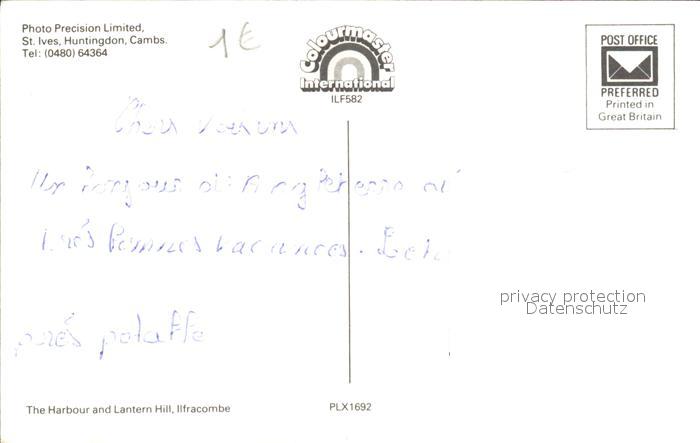 Photo Precision Limited,
St. Ives, Huntingdon, Cambs.
Tel: (0480) 64364
1€
Colourmaster
International
ILF582
POST OFFICE
PREFERRED
Printed in
Great Britain
Un bonjour d'Angleterre où
très bonnes vacances.
privacy protection
Datenschutz
The Harbour and Lantern Hill, Ilfracombe
PLX1692